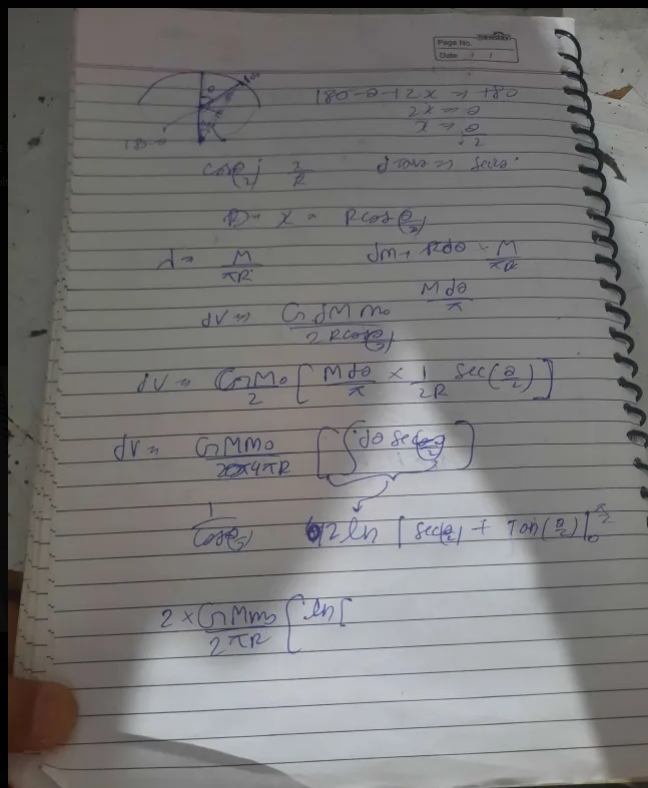 Page No.
Date / /
180-θ+2x = 180
2x = θ
x = θ/2
180-θ
cos(θ/2) = 2/R
D = x = R cos(θ/2)
λ = M/πR dM = Rdθ - M/πR
Mdθ/π
dV = G dM m₀/2Rcos(θ/2)
dV = GM₀/2 [Mdθ/π × 1/2R sec(θ/2)]
dV = GMm₀/4πR [∫dθ sec(θ/2)]
1/cos(θ/2) 2 ln [sec(θ/2) + Tan(θ/2)]₀^π/2
2 × GMm₀/2πR [ln[